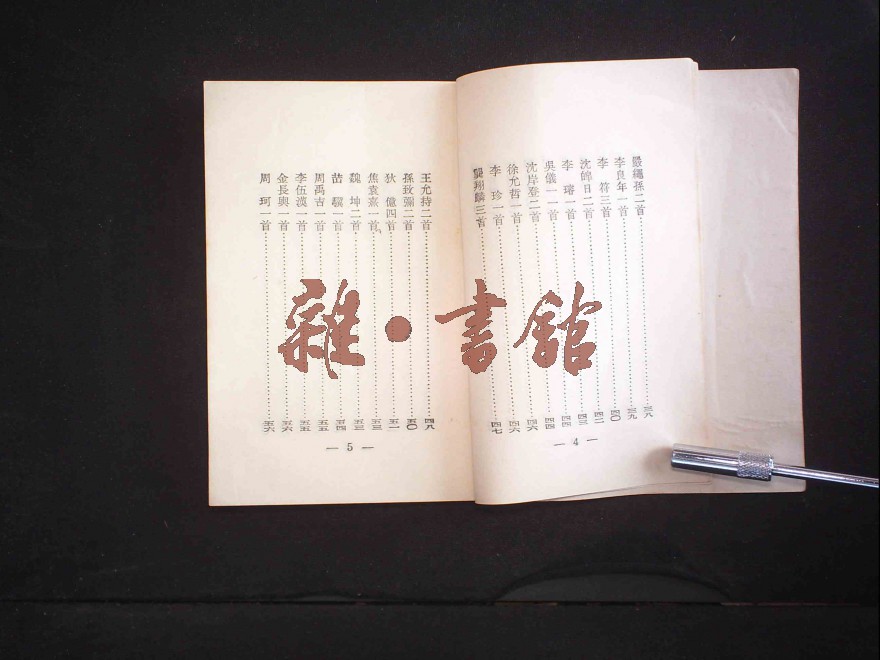 嚴繩孫二首……三八
李良年一首……三九
李　符三首……四〇
沈皥日二首……四二
李　㻬一首……四三
吳儀一一首……四四
沈岸登二首……四四
徐允哲一首……四六
李　珍一首……四六
龔翔麟三首……四七
— 4 —
王允持二首……四八
孫致彌二首……五〇
狄　億四首……五一
焦袁熹一首……五三
魏　坤二首……五三
苗　驥一首……五四
周禹吉一首……五五
李伍渶一首……五五
金長輿一首……五六
周　珂一首……五六
— 5 —
雜·書館